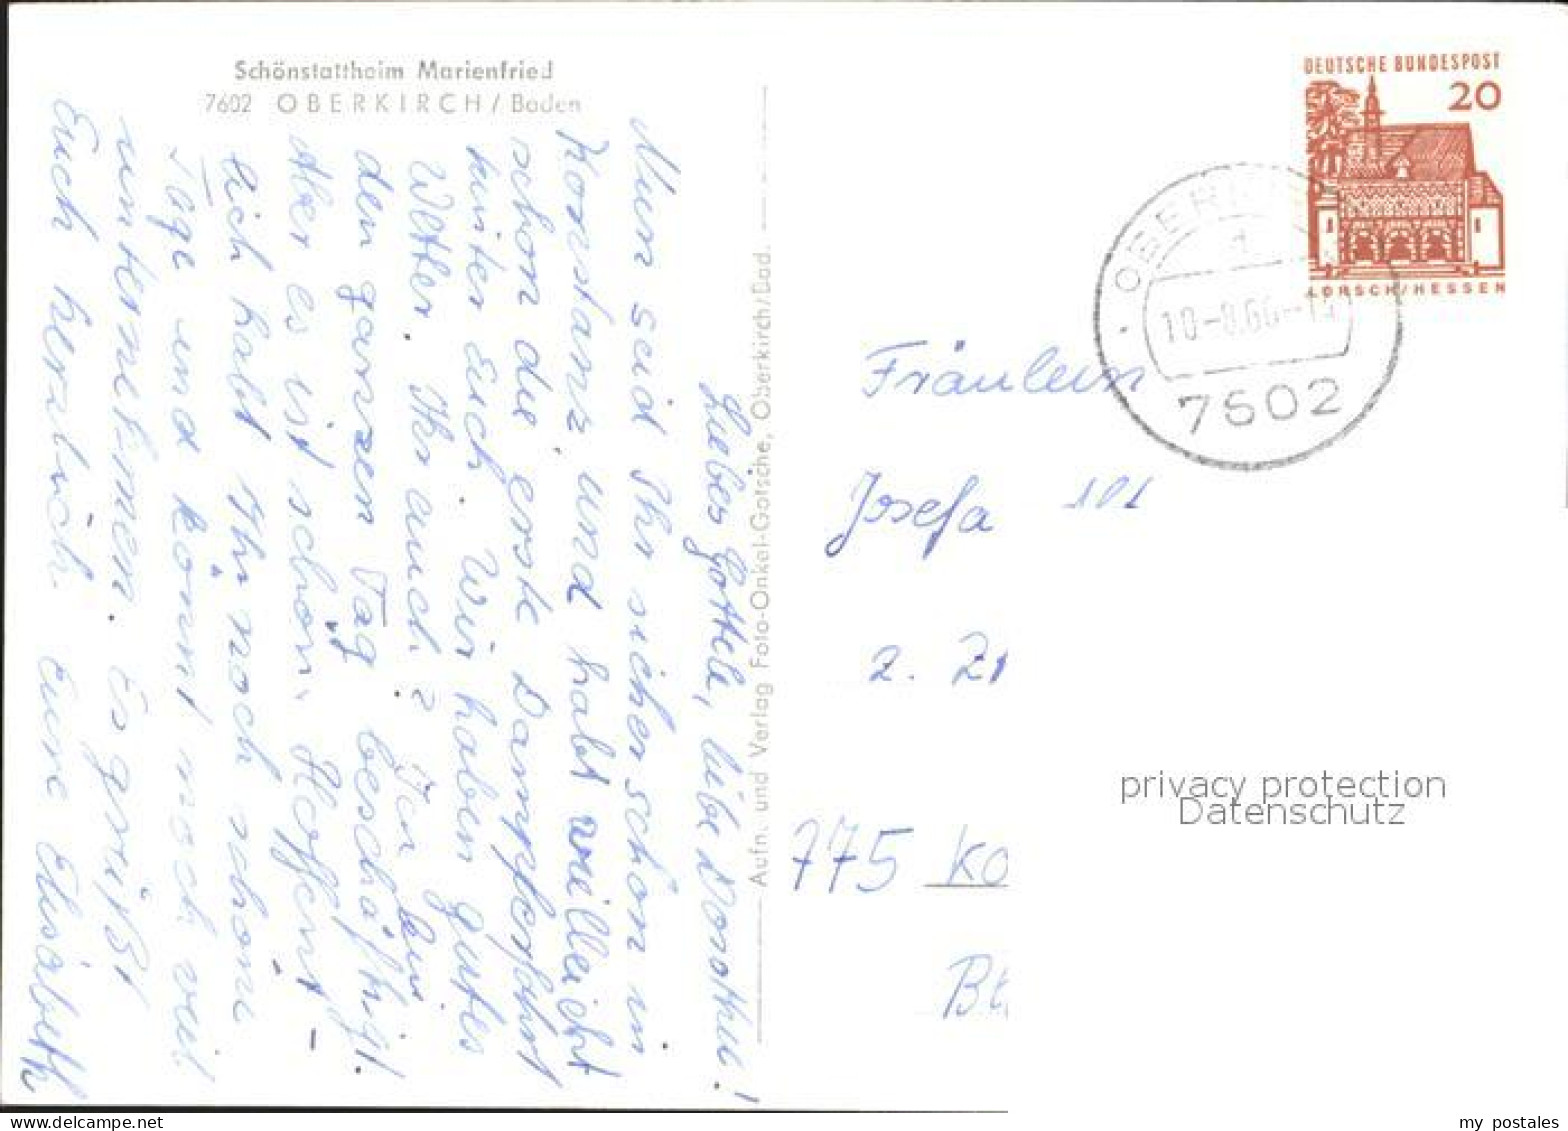 Schönstattheim Marienfried
7602 OBERKIRCH / Baden
Liebes Gottele, liebe Dorothee!
Nun seid Ihr sicher schon in
Konstanz und habt vielleicht
schon die erste Dampferfahrt
hinter Euch. Wir haben gutes
Wetter. Ihr auch? Ich bin
den ganzen Tag beschäftigt.
Aber es ist schön. Hoffent-
lich habt Ihr noch schöne
Tage und könnt noch viel
unternehmen. Es grüßt
Euch herzlich Eure Elisabeth
Aufn. und Verlag Foto-Onkel-Gotsche, Oberkirch/Bad.
DEUTSCHE BUNDESPOST
20
LORSCH/HESSEN
10-8.66-
7602
Fräulein
Josefa
z. Zt
775 Ko
privacy protection
Datenschutz
my postales